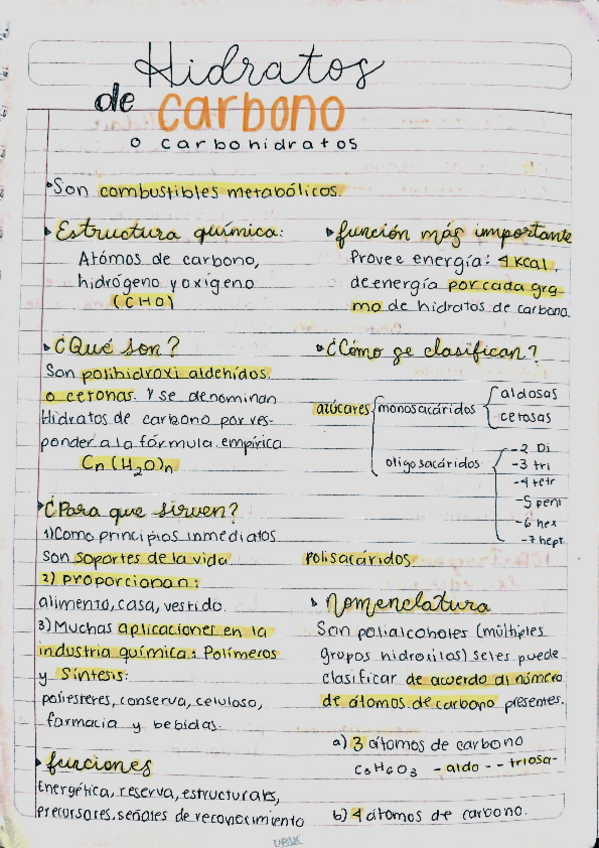 Hidratos
de carbono
o carbohidratos
Son combustibles metabólicos.
Estructura química:
Atómos de carbono,
hidrógeno y oxígeno
(CHO)
función más importante
Provee energía: 4 kcal.
de energía por cada gra-
mo de hidratos de carbono.
¿Qué son?
Son polihidroxi aldehídos
o cetonas. Y se denominan
Hidratos de carbono por res-
ponder a la fórmula empírica
Cn(H2O)n
¿Cómo se clasifican?
azúcares
monosacáridos
aldosas
cetosas
oligosacáridos
-2 Di
-3 tri
-4 tetr
-5 pent
-6 hex
-7 hept.
Polisacáridos.
¿Para que sirven?
1) Como principios inmediatos
son soportes de la vida
2) proporcionan:
alimento, casa, vestido.
3) Muchas aplicaciones en la
industria química: Polímeros
y Síntesis:
poliesteres, conserva, celuloso,
farmacia y bebidas.
Nomenclatura
Son polialcoholes (múltiples
grupos hidroxilos) se les puede
clasificar de acuerdo al número
de átomos de carbono presentes.
a) 3 átomos de carbono
C3H6O3 - aldo - - triosa-
b) 4 átomos de carbono.
funciones
Energética, reserva, estructurales,
precursores, señales de reconocimiento